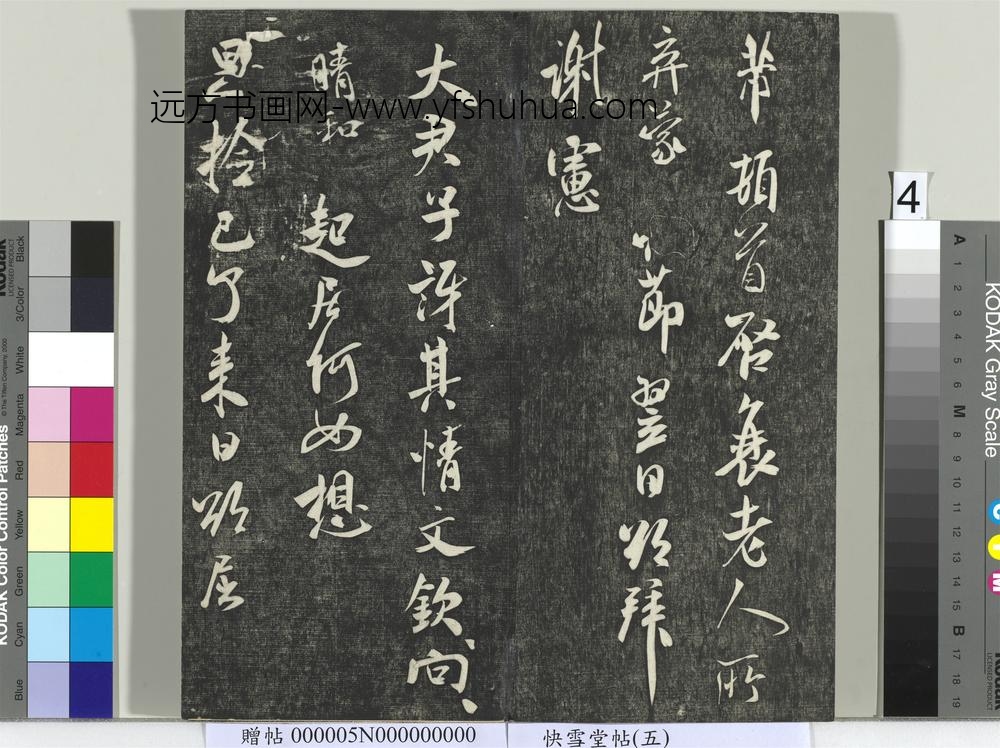 芾頓首啓衰老人所
弃家
節翌日躬拜
謝憲
大尹学訝其情文欽向
晴和
起居何如想
果拾已了来日躬居
远方书画网-www.yfshuhua.com
4
KODAK Gray Scale
A 1 2 3 4 5 6 M 8 9 10 11 12 13 14 15 B 17 18 19
C
Y
M
Kodak
LICENSED PRODUCT
KODAK Color Control Patches
© The Tiffen Company, 2000
Blue Cyan Green Yellow Red Magenta White 3/Color Black
贈帖 000005N000000000
快雪堂帖(五)